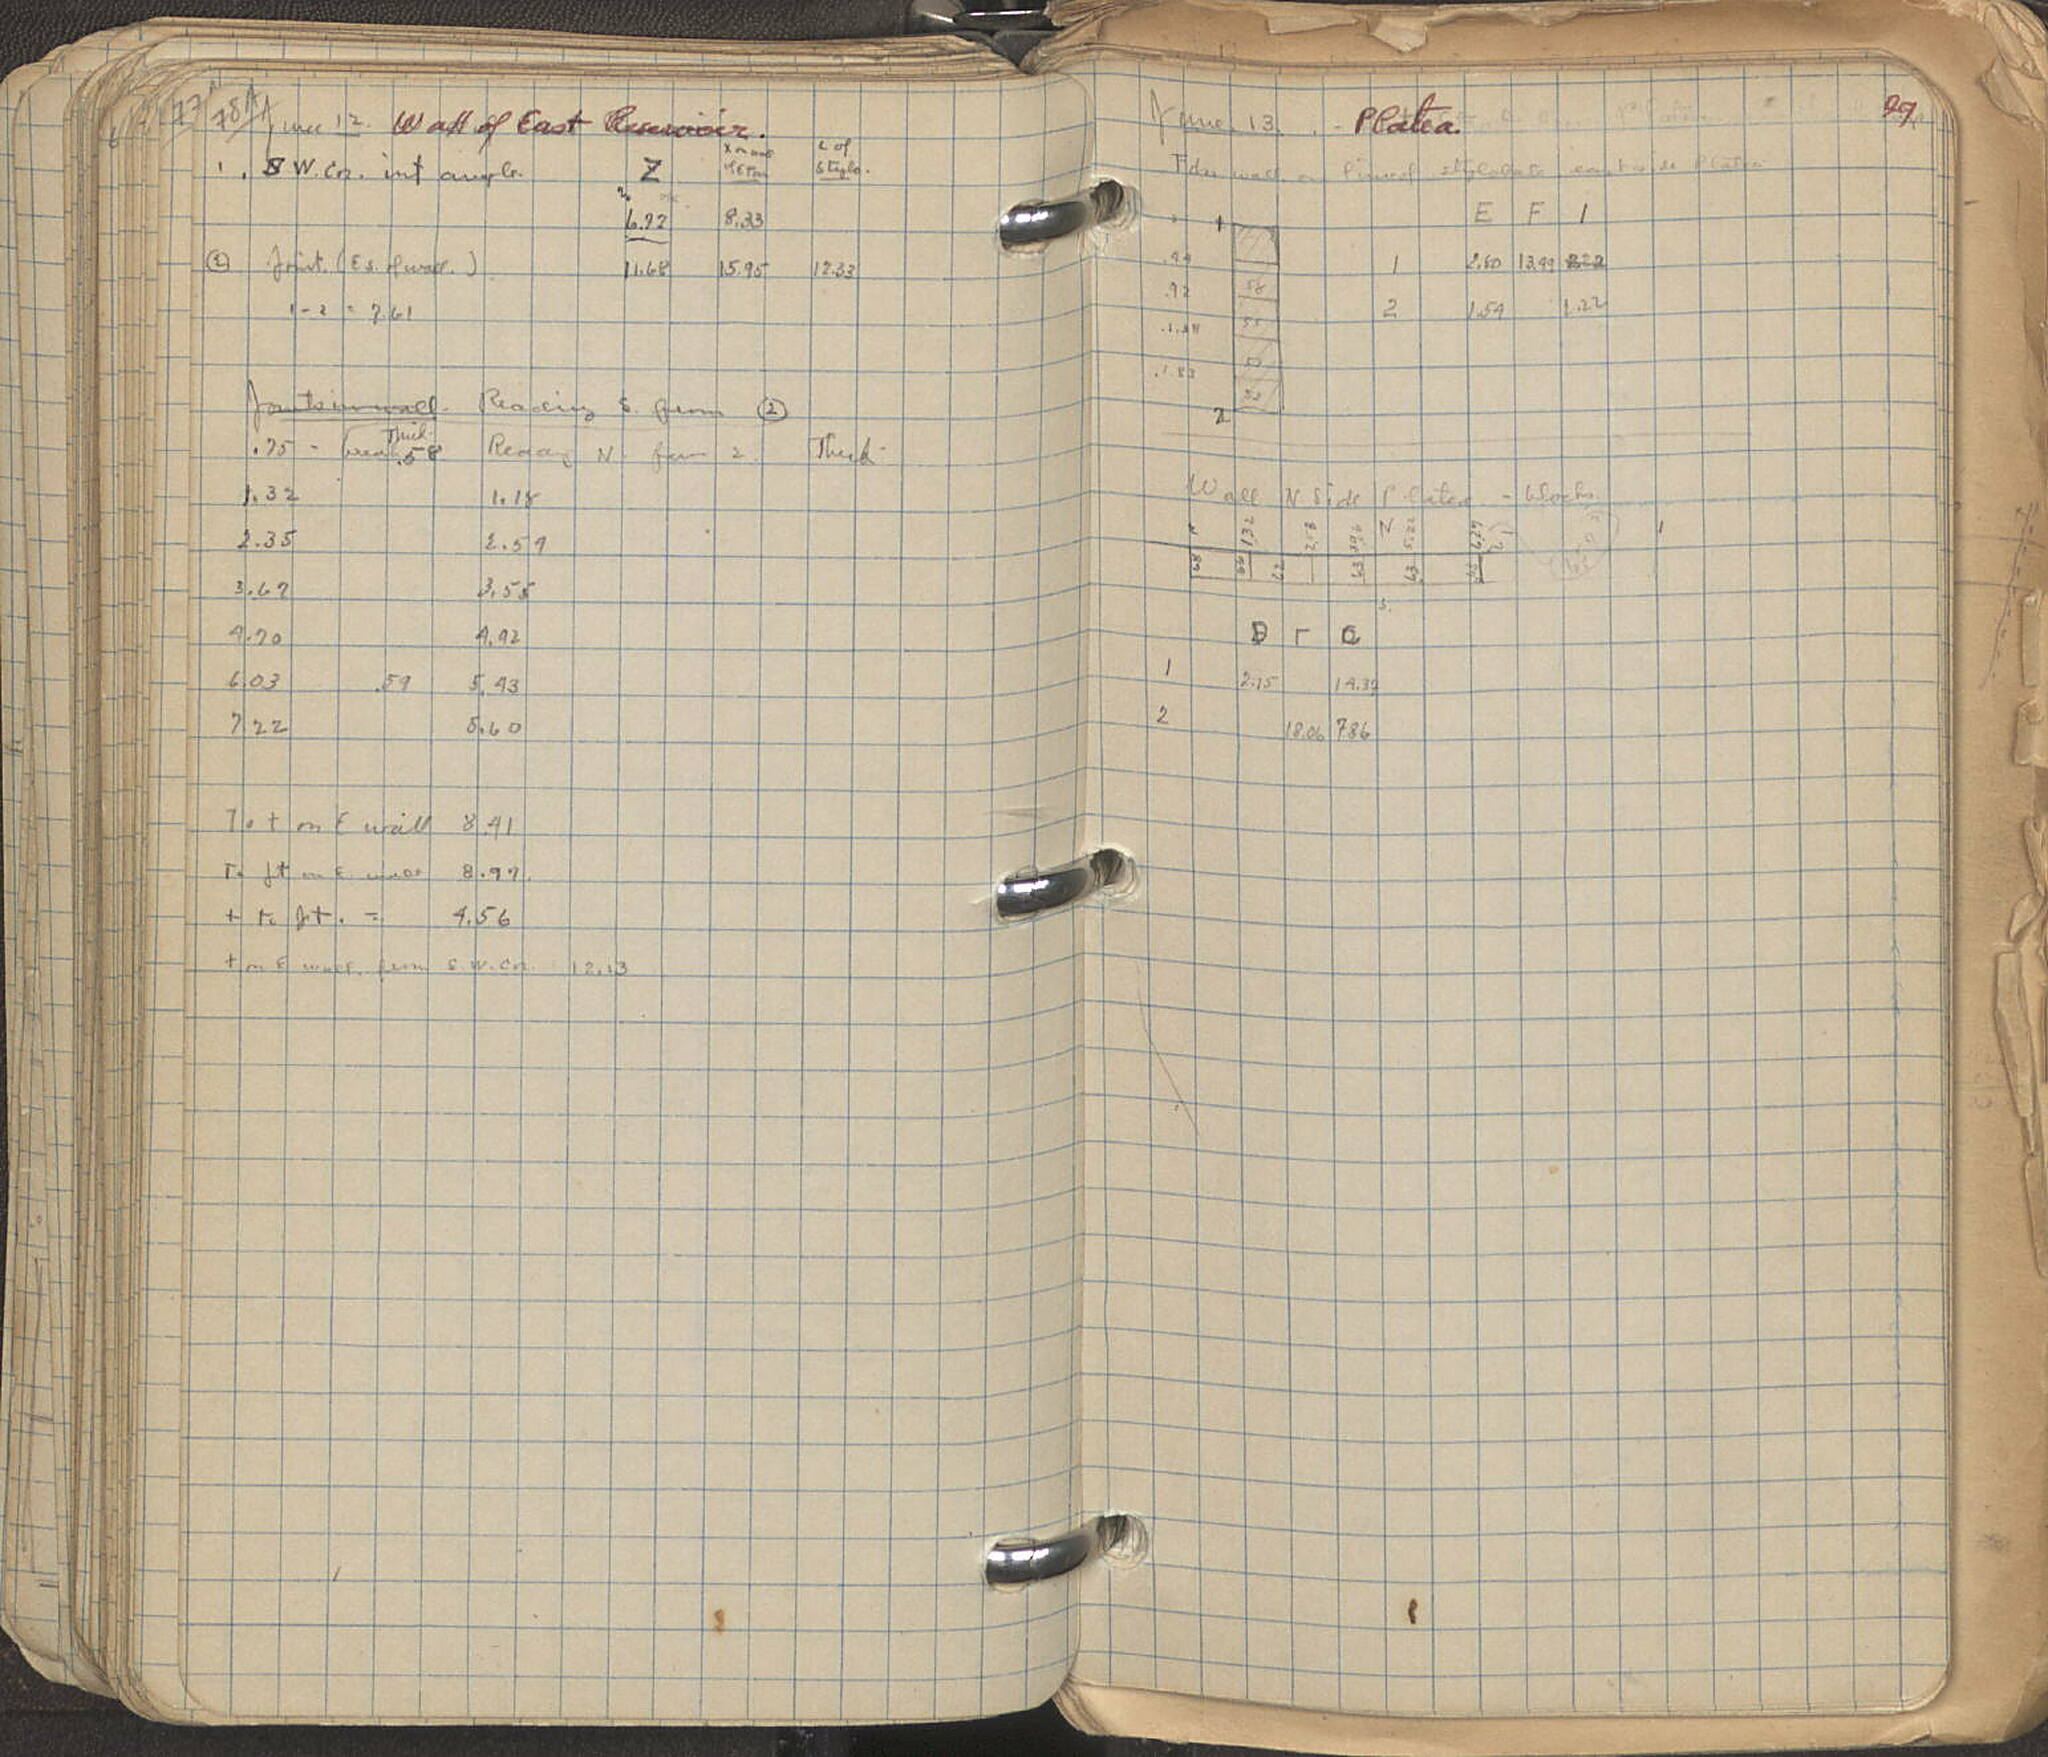 78A
June 12. Wall of East Reservoir.
1. S W. Cor. int angle. Z
L of Stylo.
6.72 8.33
② Joint. (E s. of wall.) 11.68 15.95 12.33
1-2 = 7.61
Joints in wall. Reading S. from ②
.75 - Thick .58 Reading N. from 2. Thick
1.32 1.18
2.35 2.59
3.67 3.55
4.70 4.92
6.03 .59 5.43
7.22 5.60
To + on E wall 8.41
To jt on E. wall 8.97.
+ to jt. = 4.56
+ on E wall. from S.W. Cor. 12.13
June 13. - Platea.
Fdn wall on line of stylobate east side Platea
E F 1
1
.92 58 1 2.60 13.99
55 2 1.54 1.22
.1.83
2
Wall N Side Platea - blocks.
68 66 62 63 63
S.
D Γ C
1 2.15 14.32
2 18.06 7.86